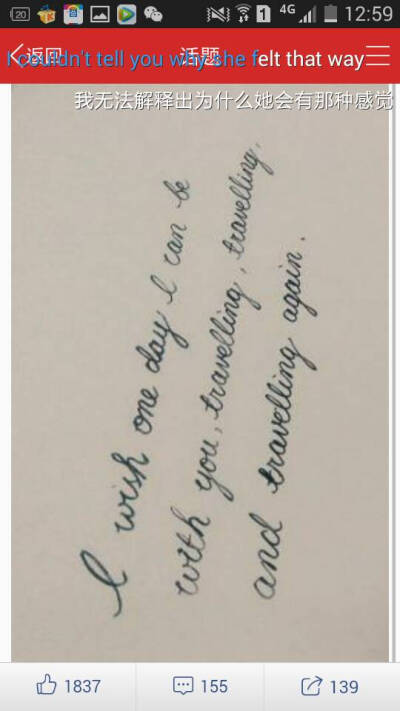 20
1
4G
12:59
返回
话题
I couldn't tell you why she felt that way
我无法解释出为什么她会有那种感觉
I wish one day I can be
with you, travelling, travelling,
and travelling again.
1837
155
139